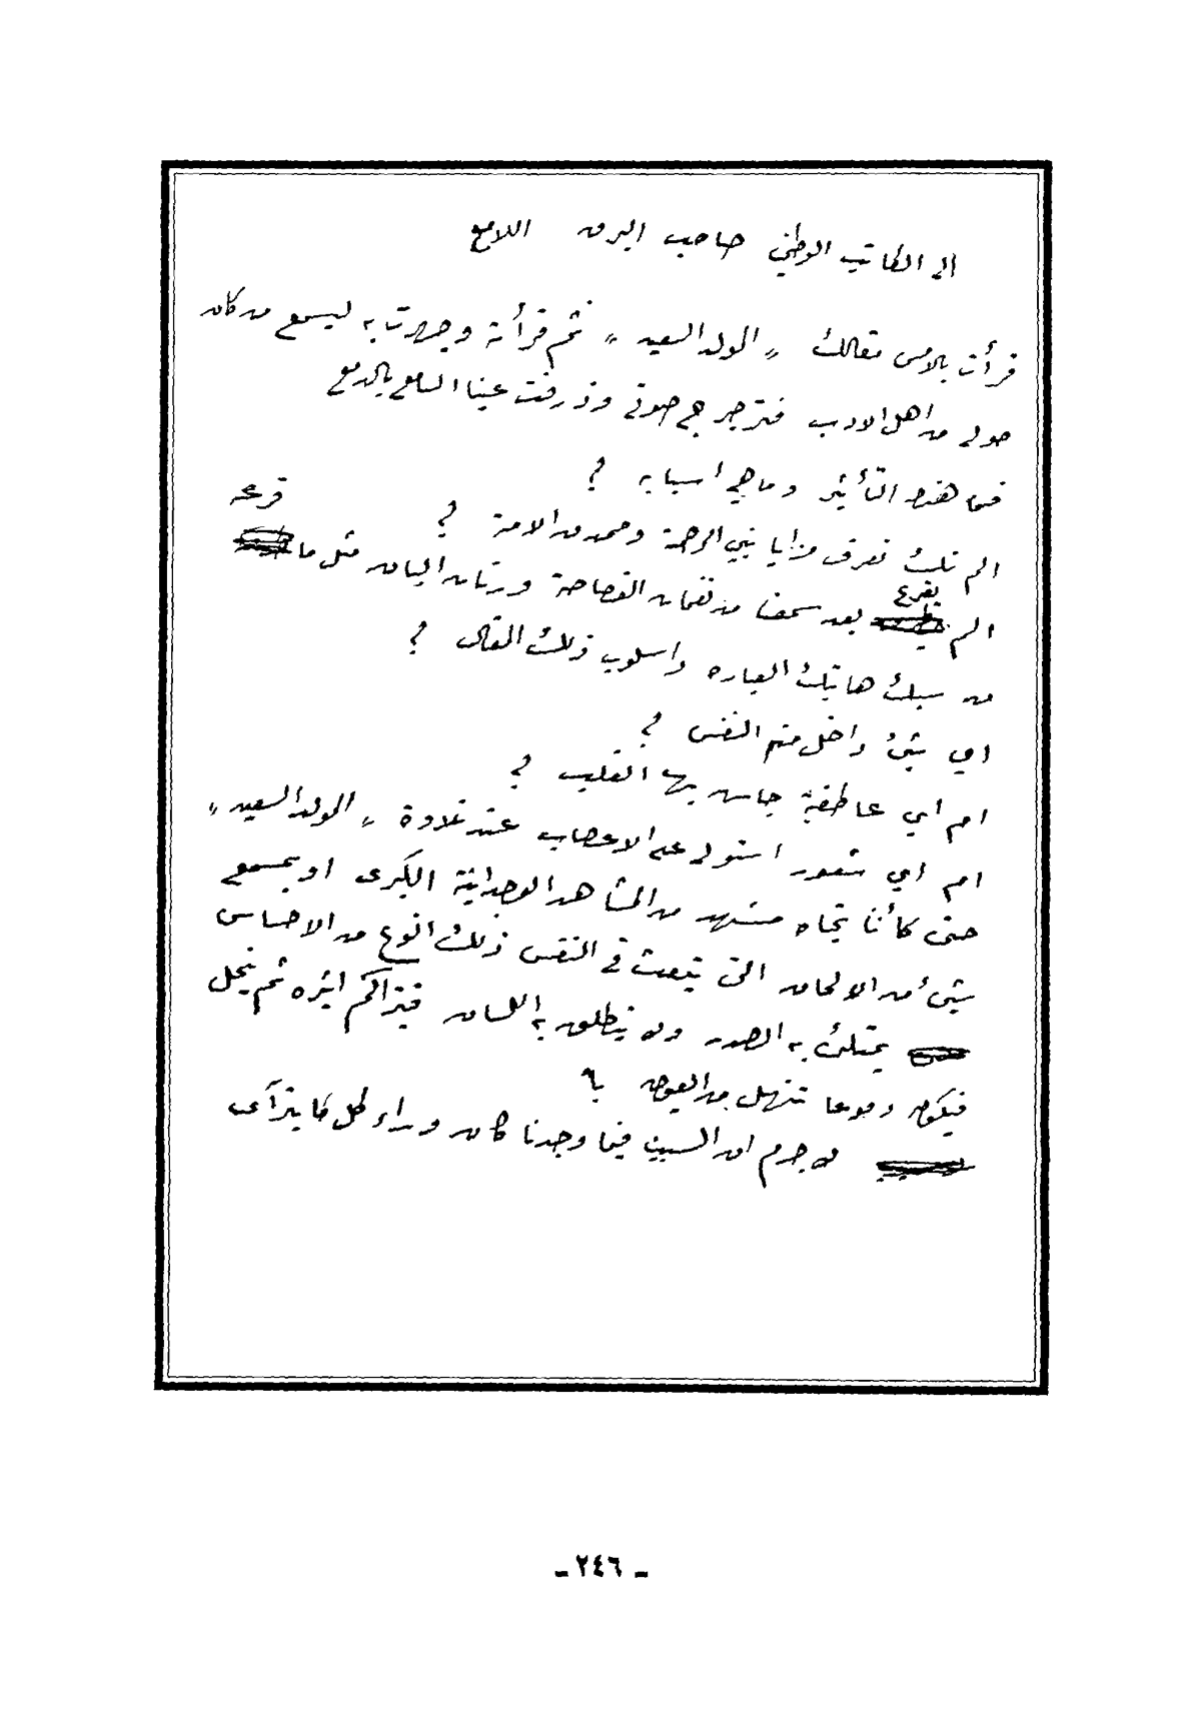 الى الكاتب الوطني صاحب البرق اللامع
قرأت بالامس مقالك « المولد السعيد » ثم قرأته وجهرت به ليسمع من كان
حولي من اهل الادب فترجرج صوتي وذرفت عينا السامع بالدمع
فما هذا التأثير وماهي اسبابه ؟
الم تك تعرف مزايا نبي الرحمة ومحمد الامة ؟
الم يقرع بعد سمعنا من نغمات الفصاحة ورنات البيان مثل ما قرعه
من سبك هاتيك العباره واسلوب ذلك المقال ؟
اي شيء داخل منه النفس ؟
ام اي عاطفة جاس بها القلب ؟
ام اي شعور استولى على الاعصاب عند تلاوة « المولد السعيد »
حتى كأننا تجاه مشهد من المشاهد الوجدانية الكبرى او بمسمع
شيء من الالحان التي تبعث في النفس ذلك النوع من الاحساس
يمتلئ به الصدر ولا ينطلق به اللسان فيتراكم اثره ثم ينحل
فيكون دموعا تنهل من العيون
لا جرم ان السبب فيما وجدنا كان وراء كل ما يترآى
- ٢٤٦ -